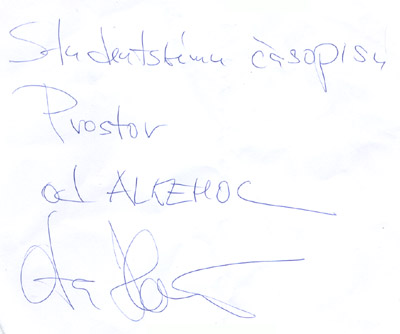 Studentskému časopisu
Prostor
od ALKEHOL